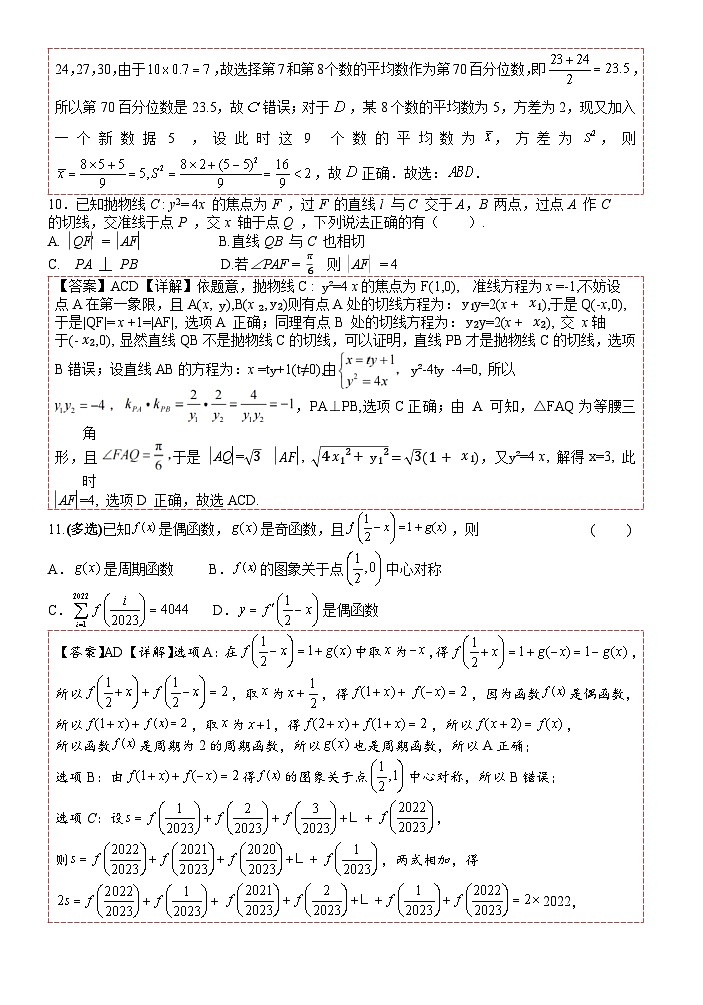 24,27,30,由于10×0.7=7,故选择第7和第8个数的平均数作为第70百分位数,即(23+24)/2=23.5,
所以第70百分位数是23.5,故C错误;对于D,某8个数的平均数为5,方差为2,现又加入
一个新数据5,设此时这9个数的平均数为x̅,方差为S²,则
x̅=(8×5+5)/9=5,S²=(8×2+(5-5)²)/9=16/9<2,故D正确.故选:ABD.
10.已知抛物线C:y²=4x 的焦点为F,过F的直线l与C交于A,B两点,过点A作C
的切线,交准线于点P,交x轴于点Q,下列说法正确的有( ).
A. |QF|=|AF| B.直线QB与C也相切
C. PA⊥PB D.若∠PAF=π/6 则 |AF|=4
【答案】ACD【详解】依题意,抛物线C: y²=4 x的焦点为F(1,0), 准线方程为x=-1,不妨设
点A在第一象限,且A(x, y),B(x ₂,y₂)则有点A处的切线方程为:y₁y=2(x+ x₁),于是Q(-x,0),
于是|QF|= x +1=|AF|, 选项A 正确;同理有点B 处的切线方程为:y₂y=2(x+ x₂), 交 x轴
于(- x₂,0), 显然直线QB不是抛物线C的切线,可以证明,直线PB才是抛物线C的切线,选项
B错误;设直线AB的方程为:x=ty+1(t≠0),由{x=ty+1 y²=4x, y²-4ty -4=0, 所以
y₁y₂=-4,k_PA•k_PB=2/y₁•2/y₂=4/(y₁y₂)=-1,PA⊥PB,选项C正确;由 A 可知,△FAQ为等腰三
角
形,且∠FAQ=π/6,于是 |AQ|=√3 |AF|, √(4x₁²+ y₁²)=√3(1+ x₁),又y²=4 x, 解得x=3, 此
时
|AF|=4, 选项D 正确,故选ACD.
11.(多选)已知f(x)是偶函数,g(x)是奇函数,且f(1/2-x)=1+g(x),则 ( )
A.g(x)是周期函数 B.f(x)的图象关于点(1/2,0)中心对称
C.∑_{i=1}^{2022} f(i/2023)=4044 D.y=f′(1/2-x)是偶函数
【答案】AD【详解】选项A:在f(1/2-x)=1+g(x)中取x为-x,得f(1/2+x)=1+g(-x)=1-g(x),
所以f(1/2+x)+f(1/2-x)=2,取x为x+1/2,得f(1+x)+f(-x)=2,因为函数f(x)是偶函数,
所以f(1+x)+f(x)=2,取x为x+1,得f(2+x)+f(1+x)=2,所以f(x+2)=f(x),
所以函数f(x)是周期为2的周期函数,所以g(x)也是周期函数,所以A正确;
选项B:由f(1+x)+f(-x)=2得f(x)的图象关于点(1/2,1)中心对称,所以B错误;
选项C:设s=f(1/2023)+f(2/2023)+f(3/2023)+L+f(2022/2023),
则s=f(2022/2023)+f(2021/2023)+f(2020/2023)+L+f(1/2023),两式相加,得
2s=f(2022/2023)+f(1/2023)+f(2021/2023)+f(2/2023)+L+f(1/2023)+f(2022/2023)=2×2022,